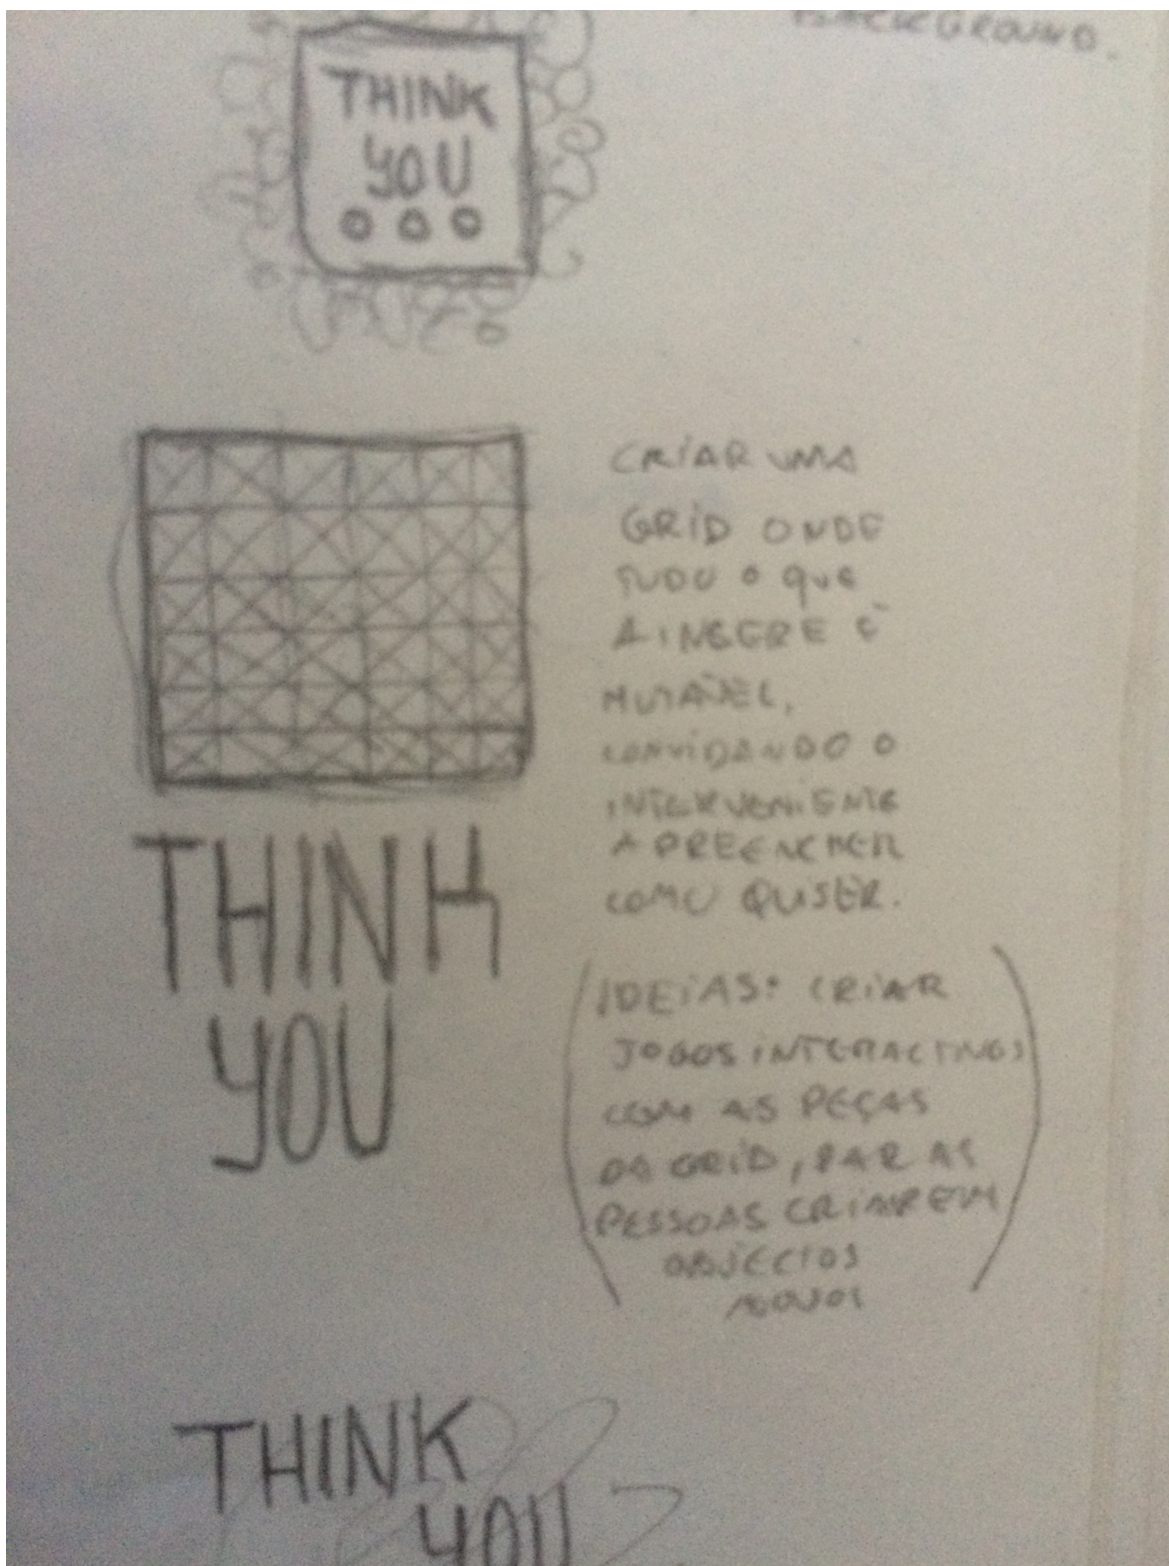 BACKGROUND.
THINK
YOU
CRIAR UMA
GRID ONDE
TUDO O QUE
A INSERE É
MUTÁVEL,
CONVIDANDO O
INTERVENIENTE
A PREENCHER
COMO QUISER.
THINK
YOU
(IDEIAS: CRIAR
JOGOS INTERACTIVOS
COM AS PEÇAS
DA GRID, PARA AS
PESSOAS CRIAREM
OBJECTOS
NOVOS)
THINK
YOU